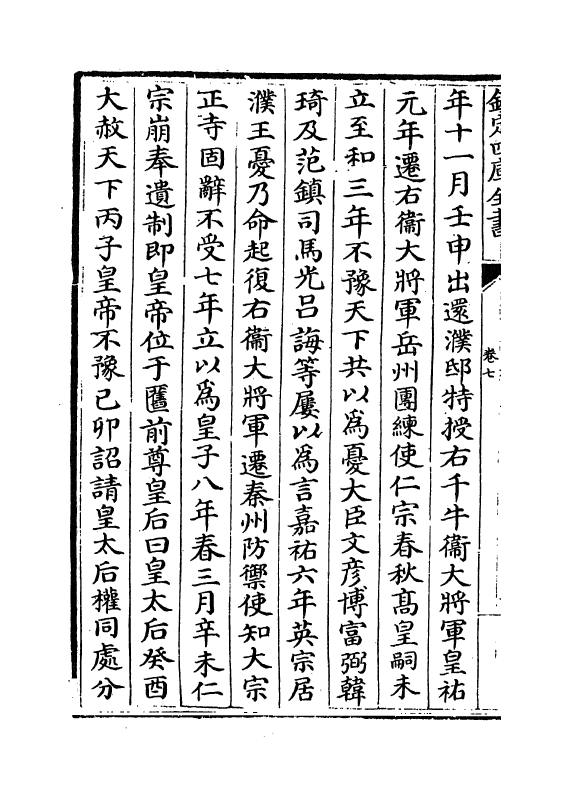 欽定四庫全書
卷七
年十一月壬申出還濮邸特授右千牛衞大將軍皇祐
元年遷右衞大將軍岳州團練使仁宗春秋髙皇嗣未
立至和三年不豫天下共以為憂大臣文彦博富弼韓
琦及范鎮司馬光吕誨等屢以為言嘉祐六年英宗居
濮王憂乃命起復右衞大將軍遷秦州防禦使知大宗
正寺固辭不受七年立以為皇子八年春三月辛未仁
宗崩奉遺制即皇帝位于匶前尊皇后曰皇太后癸酉
大赦天下丙子皇帝不豫己卯詔請皇太后權同處分